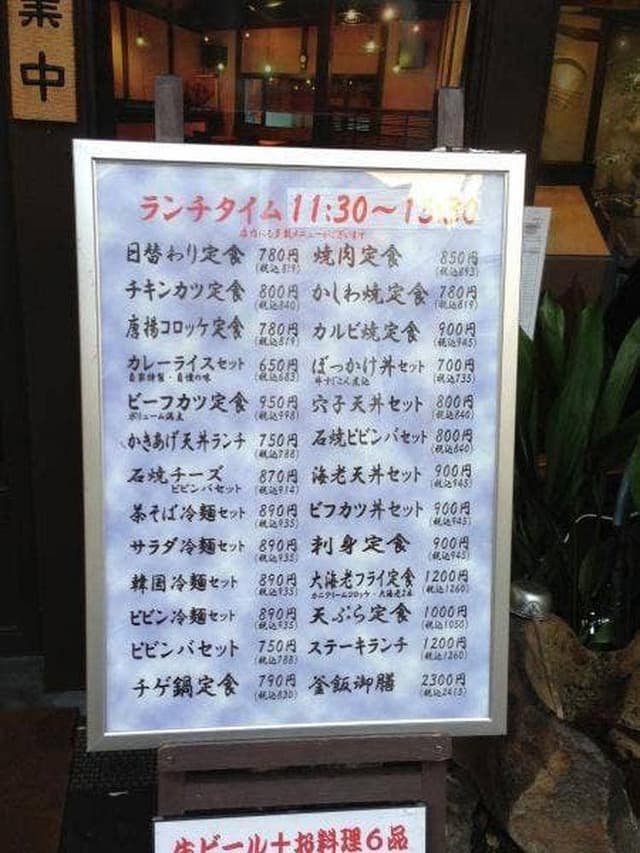 業中
ランチタイム 11:30〜15:30
店内にも多数メニューがございます
日替わり定食 780円 (税込819)
チキンカツ定食 800円 (税込840)
唐揚コロッケ定食 780円 (税込819)
カレーライスセット 650円 (税込683)
自家特製・自慢の味
ビーフカツ定食 950円 (税込998)
ボリューム満点
かきあげ天丼ランチ 750円 (税込788)
石焼チーズ 870円 (税込914)
ビビンバセット
茶そば冷麺セット 890円 (税込935)
サラダ冷麺セット 890円 (税込935)
韓国冷麺セット 890円 (税込935)
ビビン冷麺セット 890円 (税込935)
ビビンバセット 750円 (税込788)
チゲ鍋定食 790円 (税込830)
焼肉定食 850円 (税込893)
かしわ焼定食 780円 (税込819)
カルビ焼定食 900円 (税込945)
ぼっかけ丼セット 700円 (税込735)
牛すじこん煮込
穴子天丼セット 800円 (税込840)
石焼ビビンバセット 800円 (税込840)
海老天丼セット 900円 (税込945)
ビフカツ丼セット 900円 (税込945)
刺身定食 900円 (税込945)
大海老フライ定食 1200円 (税込1260)
カニクリームコロッケ・大海老2本
天ぷら定食 1000円 (税込1050)
ステーキランチ 1200円 (税込1260)
釜飯御膳 2300円 (税込2415)
生ビール+お料理6品